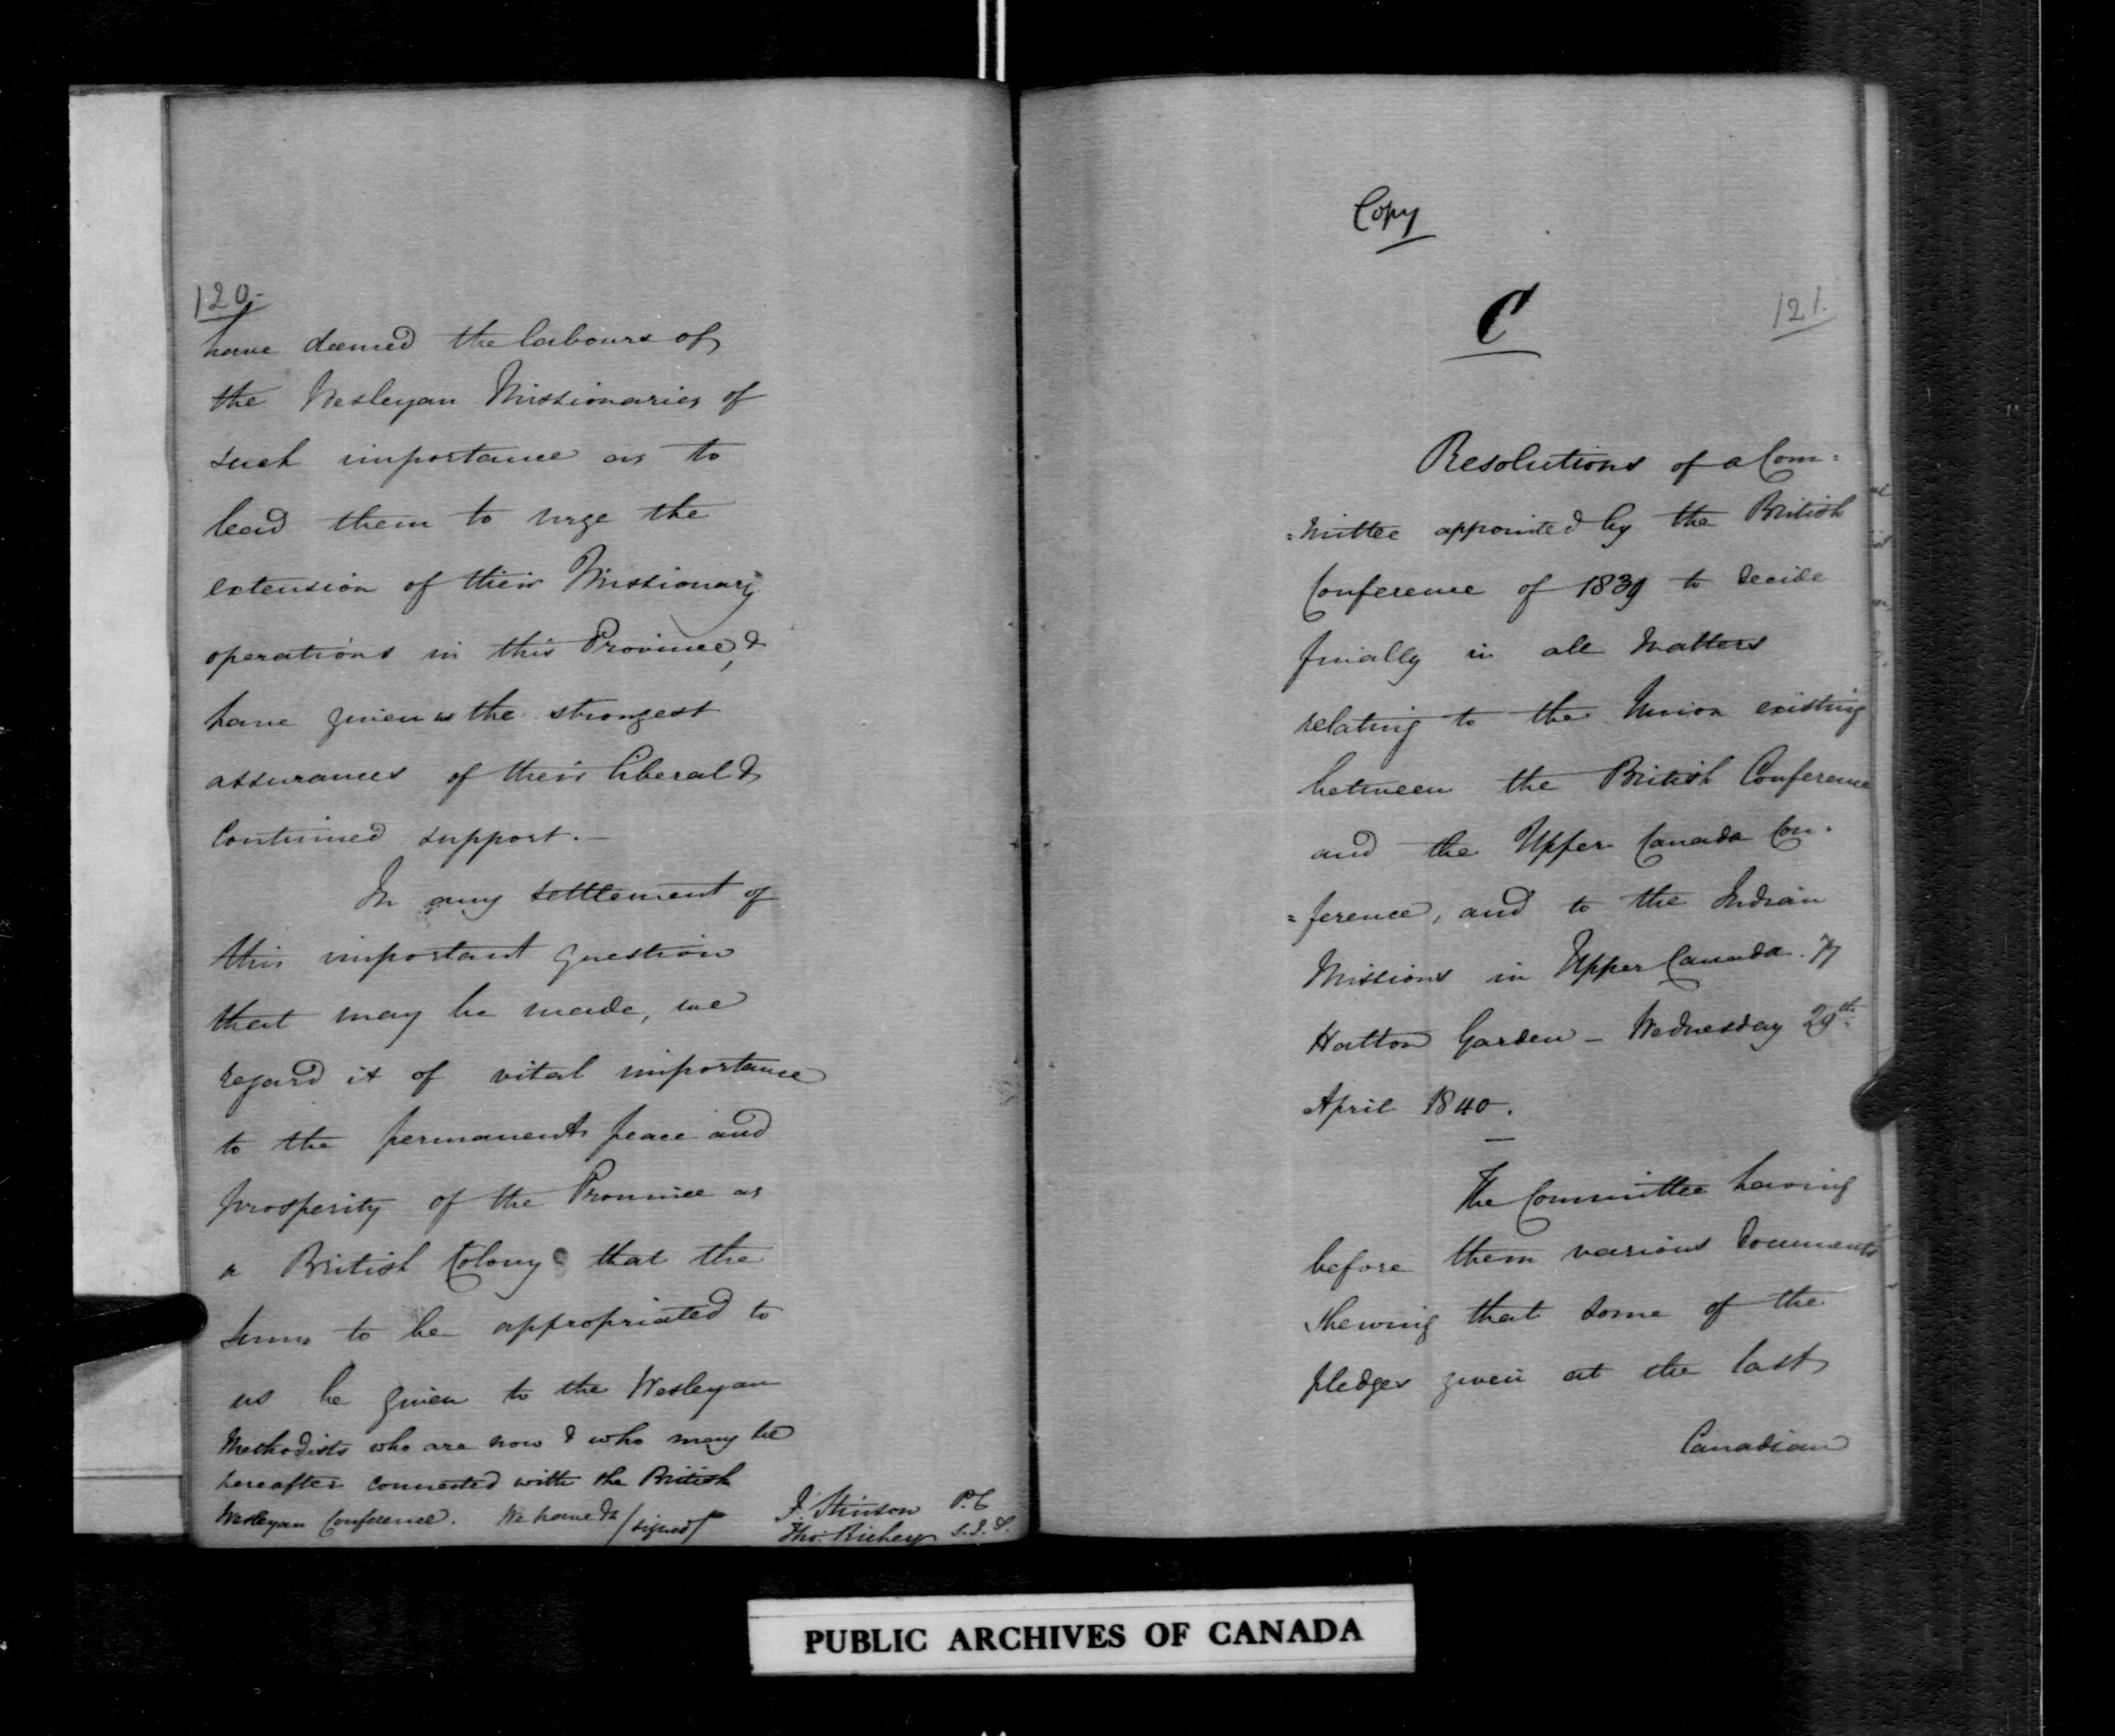 120.
have deemed the labours of
the Wesleyan Missionaries of
such importance as to
lead them to urge the
extension of their Missionary
operations in this Province, &
have given us the strongest
assurances of their liberal &
Continued support. —
In any settlement of
this important question
that may be made, we
regard it of vital importance
to the permanent peace and
prosperity of the Province as
a British Colony that the
sums to be appropriated to
us be given to the Wesleyan
Methodists who are now & who may be
hereafter connected with the British
Wesleyan Conference. We have &c (signed)
J. Stinson P.C
Richey
Copy
C
121.
Resolutions of a Com=
=mittee appointed by the British
Conference of 1839 to decide
finally in all Matters
relating to the Union existing
between the British Conference
and the Upper Canada Con=
=ference, and to the Indian
Missions in Upper Canada. 77
Hatton Garden — Wednesday 29th
April 1840.
The Committee having
before them various documents
shewing that some of the
pledges given at the last
Canadian
PUBLIC ARCHIVES OF CANADA